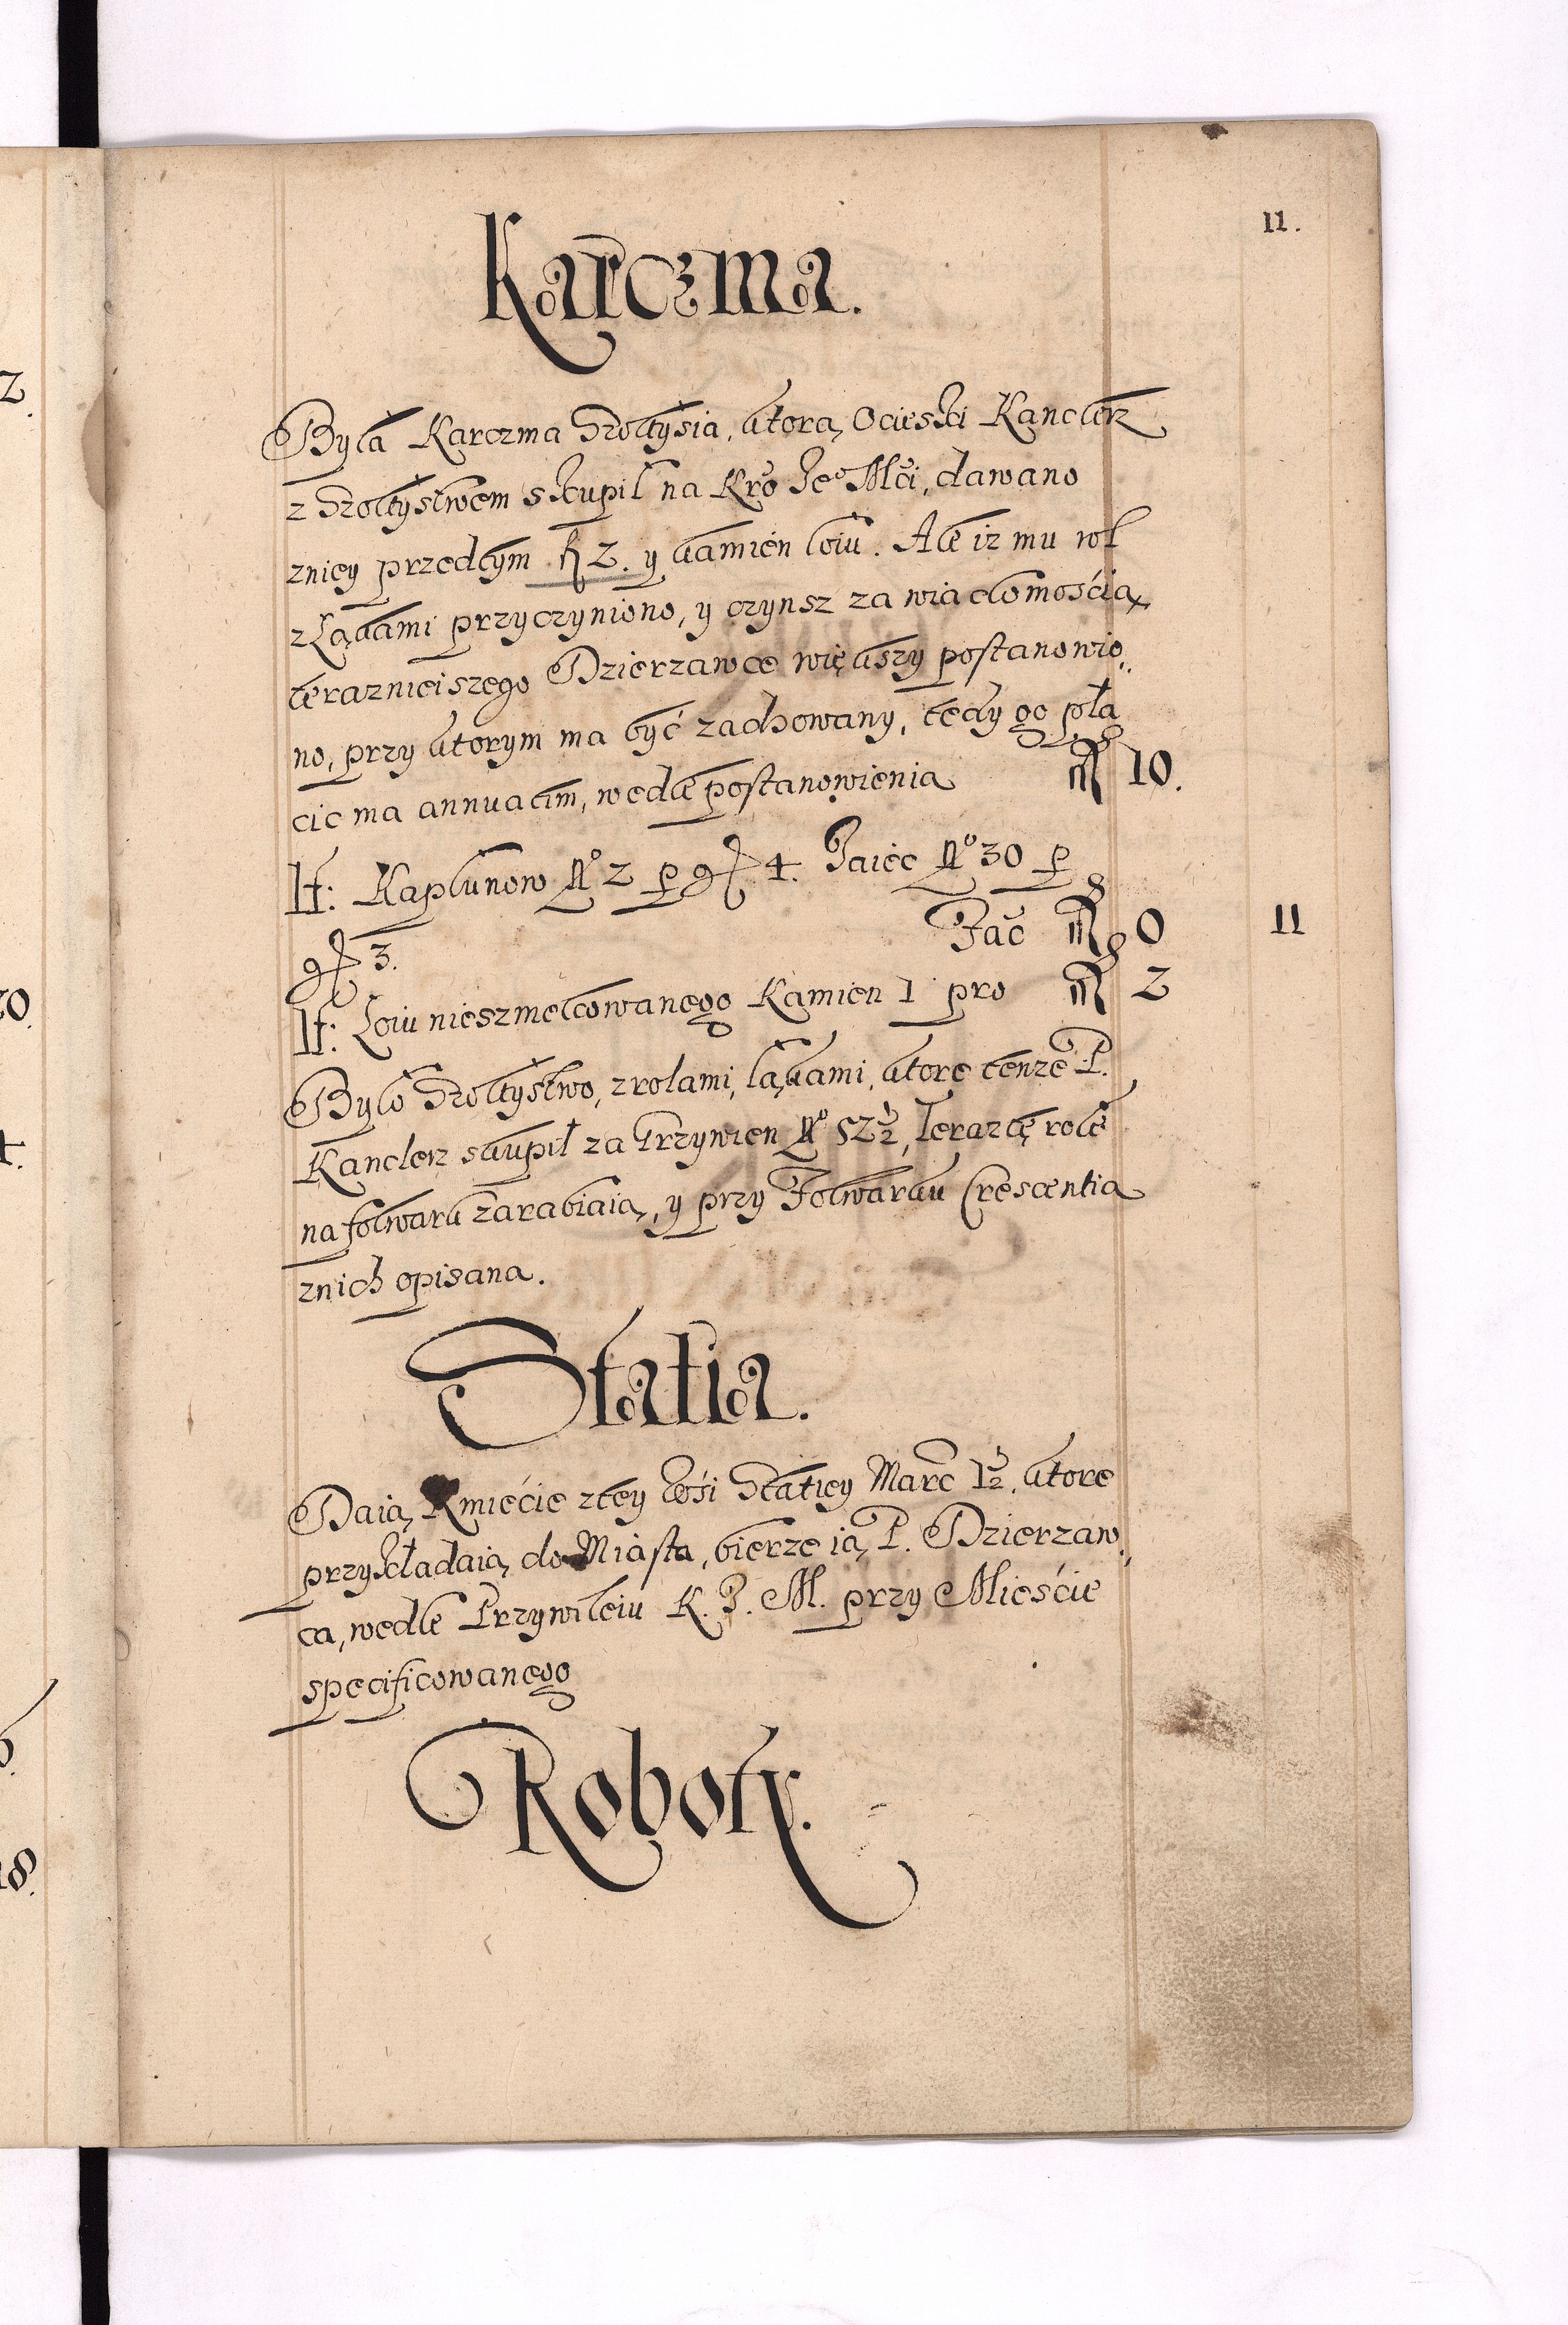 11.
Karczma.
Była Karczma Szołtysia, ktorą Ocieski Kanclerz
z Szołtystwem skupił na Kro Je° Mći, dawano
zniey przedtym f 2. y kamien łoiu. Ale iz mu rol
z Łąkami przyczyniono, y czynsz za wiadomością
terazniejszego Dzierzawce większy postanowio„
no, przy ktorym ma być zachowany, tedy go pła
cic ma annuatim, wedle postanowienia f 10.
It: Kapłunow N° 2 p gr 4. Jaiec N° 30 p
gr 3. Fac̃ f 0 11
It: Łoiu nieszmelcowanego Kamien 1 pro f 2
Było Szołtystwo, z rolami, łąkami, ktore tenze P.
Kanclerz skupił za Grzywien N° 52½, Teraz tę role
na folwark zarabiaią, y przy Folwarku Crescentia
znich opisana.
Statia.
Daią Kmiećie z tey Wśi Statiey Marc 1½, ktore
przykładaią do Miasta, bierze ią P. Dzierzaw„
ca, wedle Przywileiu K. J. M. przy Mieście
specificowanego
Roboty.